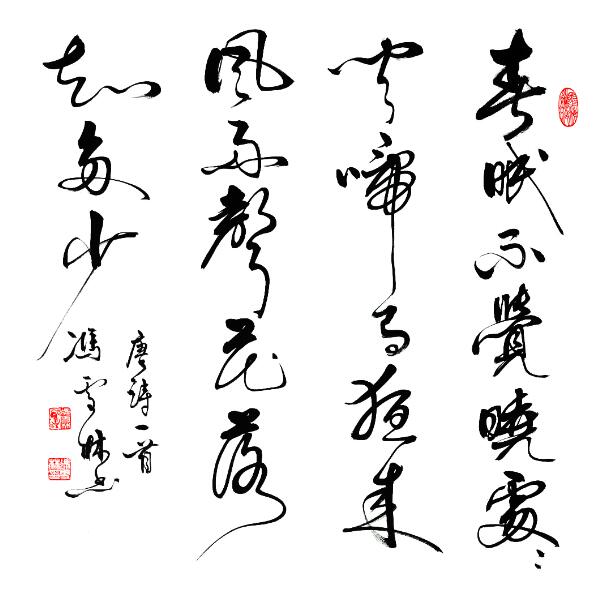 春眠不覺曉處〻
聞啼鳥夜來
風雨聲花落
知多少
唐詩一首
馮雪林書